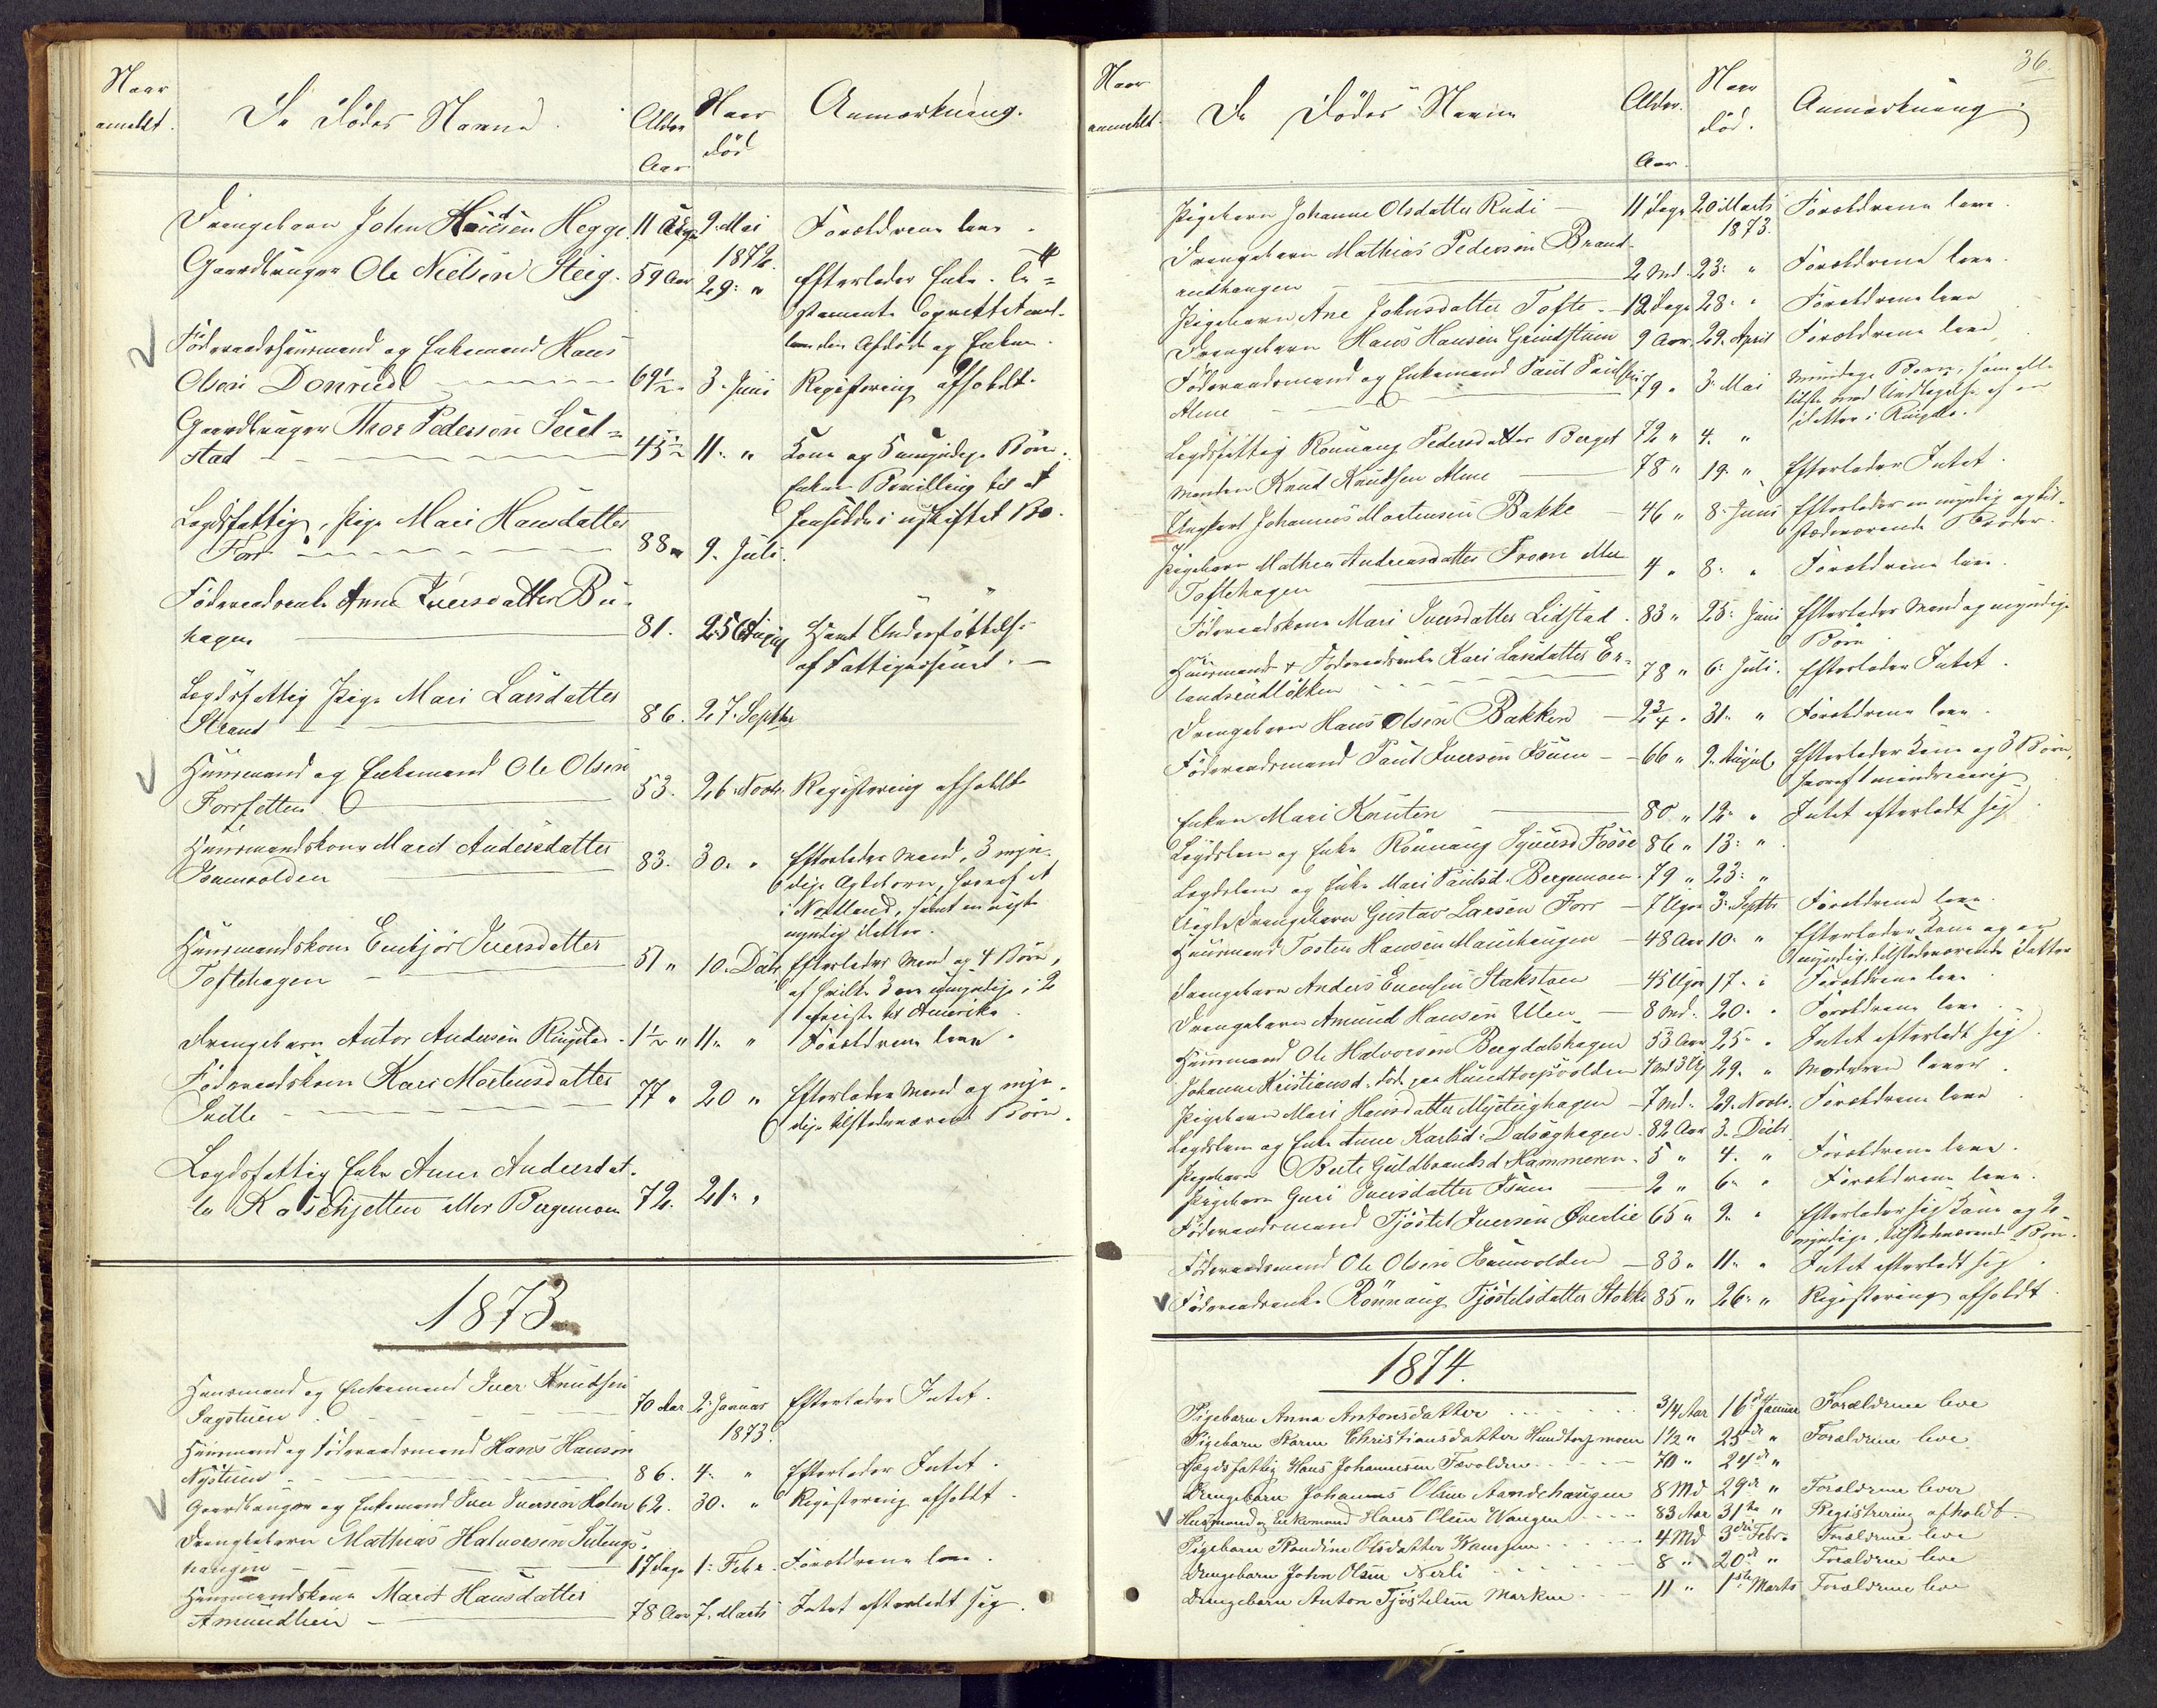 Naar
anmeldt.
De Dødes Navne.
Alder
Aar
Naar
død
Anmærkning.
Drengebarn John Hansen Hegge. 11 Dage 9. Mai Forældrene leve.
1872.
Gaardbruger Ole Nielsen Steig. 59 Aar 29. " Efterlader Enke. Te=
stamente oprettet mel-
lem den Afdøde og Enken.
Føderaadshuusmand og Enkemand Hans
Olsen Donrud 69½ 3. Juni Registrering afholdt.
Gaardbruger Thor Pedersen Suul=
stad 45½ 11. " Kone og 5 umyndige Børn.
Enken Bevilling til at
hensidde i uskiftet Bo.
Lægdsfattig, Pige Mari Hansdatter
Forr 88 " 9. Juli.
Føderaadsenke Anne Iversdatter Bu-
hagen 81. 25 August Havt Understøttelse
af Fattigvæsenet.
Lægdsfattig Pige Mari Larsdatter
Strand 86. 27. Septbr
Huusmand og Enkemand Ole Olsen
Forrsletten 53. 26. Novbr. Registrering afholdt
Huusmandskone Marit Andersdatter
Isumvolden 83. 30. " Efterlader Mand, 3 myn-
dige Ægtebørn, hvoraf et
i Nordland, samt en uægte
myndig Datter.
Huusmandskone Embjør Iversdatter
Toftehagen 51 " 10. Decbr Efterlader Mand og 4 Børn,
af hvilke 3 ere umyndige, 2
reiste til Amerika.
Drengebarn Anton Andersen Ringstad. 1½ " 11. " Forældrene leve.
Føderaadskone Kari Mortensdatter
Sville 77 " 20 " Efterlader Mand og myn-
dige tilstedeværende Børn.
Lægdsfattig Enke Anne Andersdat-
ter Kaschjetten eller Bergemoen 72. 21. "
1873.
Huusmand og Enkemand Iver Knudsen
Sagstuen 70 Aar 2. Januar Efterlader Intet.
1873.
Huusmand og Føderaadsmand Hans Hansen
Nystuen 86. 4. " Efterlader Intet.
Gaardbruger og Enkemand Iver Iversen Holen 62. 30. " Registrering afholdt.
Drengebarn Mathias Halvorsen
haugen 17 Dage 1. Febr. Forældrene leve.
Huusmandskone Marit Hansdatter
Amundlien 78 Aar 7. Marts Intet efterladt sig.
36.
Naar
anmeldt
De Dødes Navne
Alder.
Aar.
Naar
død.
Anmærkning
Pigebarn Johanne Olsdatter Rudi 11 Dage 20 Marts Forældrene leve.
1873.
Drengebarn Mathias Pedersen Brand-
rudhaugen 2 Md. 23. " Forældrene leve.
Pigebarn Ane Johnsdatter Tofte 12 Dage 28. " Forældrene leve
Drengebarn Hans Hansen Grindstuen 9 Aar 29. April Forældrene leve
Føderaadsmand og Enkemand Paul Paulsen
Alme 79 " 3. Mai Myndige Børn, som alle
tilstede med Undtagelse af en
Datter i Ringebo.
Lægdsfattig Rønnaug Pedersdatter Berget 72 " 4. "
Manden Knud Knudsen Alme 78 " 19. " Efterlader Intet.
Ungkarl Johannes Mortensen Bakke 46 " 8. Juni Efterlader en myndig og til-
stedeværende Broder.
Pigebarn Mathea Andreasdatter Fron eller
Toftehagen 4 " 8. " Forældrene leve.
Føderaadskone Mari Iversdatter Lidstad. 83 " 25. Juni Efterlader Mand og myndige
Børn
Huusmands & Føderaadsenke Kari Larsdatter Er-
landsrudløkken 78 " 6. Juli. Efterlader Intet.
Drengebarn Hans Olsen Bakken 2¾ " 31. " Forældrene leve.
Føderaadsmand Paul Iversen Isum 66 " 9. August Efterlader Kone og 3 Børn,
hvoraf 1 mindreaarig
Enken Mari Knuten 80 " 12. " Intet efterladt sig.
Lægdslem og Enke Rønnaug Syversd Fosse 86 " 13. "
Lægdslem og Enke Mari Paulsd. Bergemoen. 79 " 23. "
Uægte Drengebarn Gustav Larsen Forr 7 Uger 3. Septbr Forældrene leve.
Huusmand Tosten Hansen Maurhaugen 48 Aar 10. " Efterlader Kone og en
myndig, tilstedeværende Datter
Drengebarn Anders Evensen Stakstoen 45 Uger 17. " Forældrene leve.
Drengebarn Amund Hansen Ulen 8 Md. 20. " Forældrene leve.
Huusmand Ole Halvorsen Bergdalshagen 53 Aar 25. " Intet efterladt sig.
Johanne Kristiansd. død paa Hundtorpvolden 1 Md 3 Ug 29. " Moderen lever.
Pigebarn Mari Hansdatter Myrteighagen 7 Md. 29. Novbr. Forældrene leve
Lægdslem og Enke Anne Karlsd: Dalseghagen 82 Aar 3. Decbr.
Pigebarn Berte Guldbrandsd Hammeren. 5 " 4. " Forældrene leve.
Pigebarn Guri Iversdatter Isum 2 " 6. " Forældrene leve.
Føderaadsmand Tjøstel Iversen Øverlie 65 " 9. " Efterlader sig Kone og 2
myndige, tilstedeværende Børn.
Føderaadsmand Ole Olsen Isumvolden 83 " 11. " Intet efterladt sig.
Føderaadsenke Rønnaug Tjøstelsdatter Stokke 85 " 26. " Registrering afholdt.
1874.
Pigebarn Anna Antonsdatter 3/4 Aar 16de Januar Forældrene leve
Pigebarn Karen Christiansdatter Hundtorpmoen 1½ " 25de " Forældrene leve
Lægdsfattig Hans Johannesen Tævolden 70 " 24de "
Drengebarn Johannes Olsen Aandehaugen 8 Md 29de " Forældrene lever
Husmand og Enkemand Hans Olsen Wangen 83 Aar 31te " Registrering afholdt
Pigebarn Randine Olsdatter 4 Md 3die Febr. Forældrene leve
Drengebarn John Olsen Nerli 8 " 20de " Forældrene leve
Drengebarn Anton Tjøstelsen Marken 11 " 1ste Marts Forældrene leve